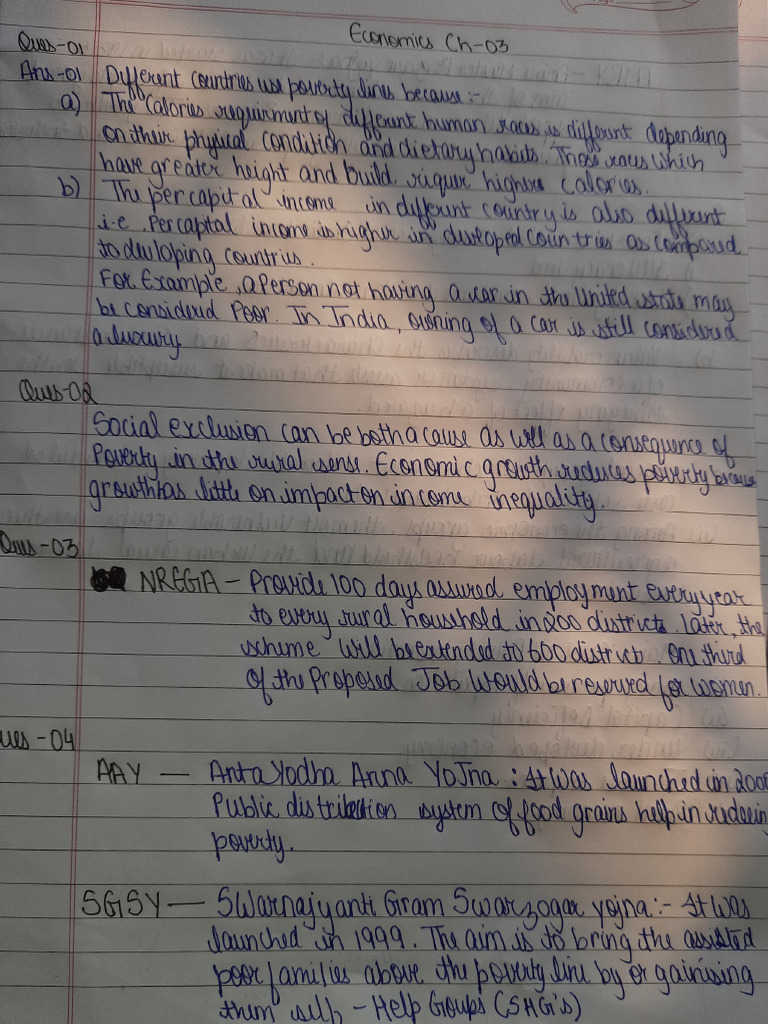 Economics Ch-03
Ques-01
Ans-01 Different countries use poverty lines because:-
a) The Calories requirment of different human races is different depending
on their physical condition and dietary habits. Those races which
have greater height and build riquer highers calories.
b) The per capital income in different country is also different
i.e Per capital income is higher in developed countries as compared
to devloping countries.
For Example, a Person not having a car in the United state may
be considerd Poor. In India, owning of a car is still considered
a luxury
Ques-02
Social exclusion can be both a cause as well as a consequence of
Poverty in the rural sense. Economic growth reduces poverty because
growth has little on impact on income inequality.
Ques-03
NREGA - Provide 100 days assured employment every year
to every rural household in 200 districts. Later, the
scheme will be extended to 600 district. One third
of the Proposed Job would be reserved for women.
ues-04
AAY — Anta Yodha Anna YoJna : It was launched in
Public distribution system of food grains help in
poverty.
SGSY — SWarnajyanti Gram Swarzogar yojna:- It was
launched in 1999. The aim is to bring the assisted
poor families above the poverty line by or gainising
them self - Help Groups (SHG's)